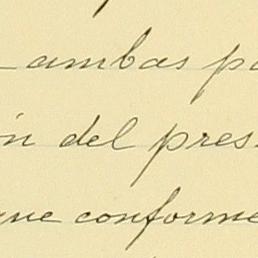 ambas pa
ón del pres
que conforme